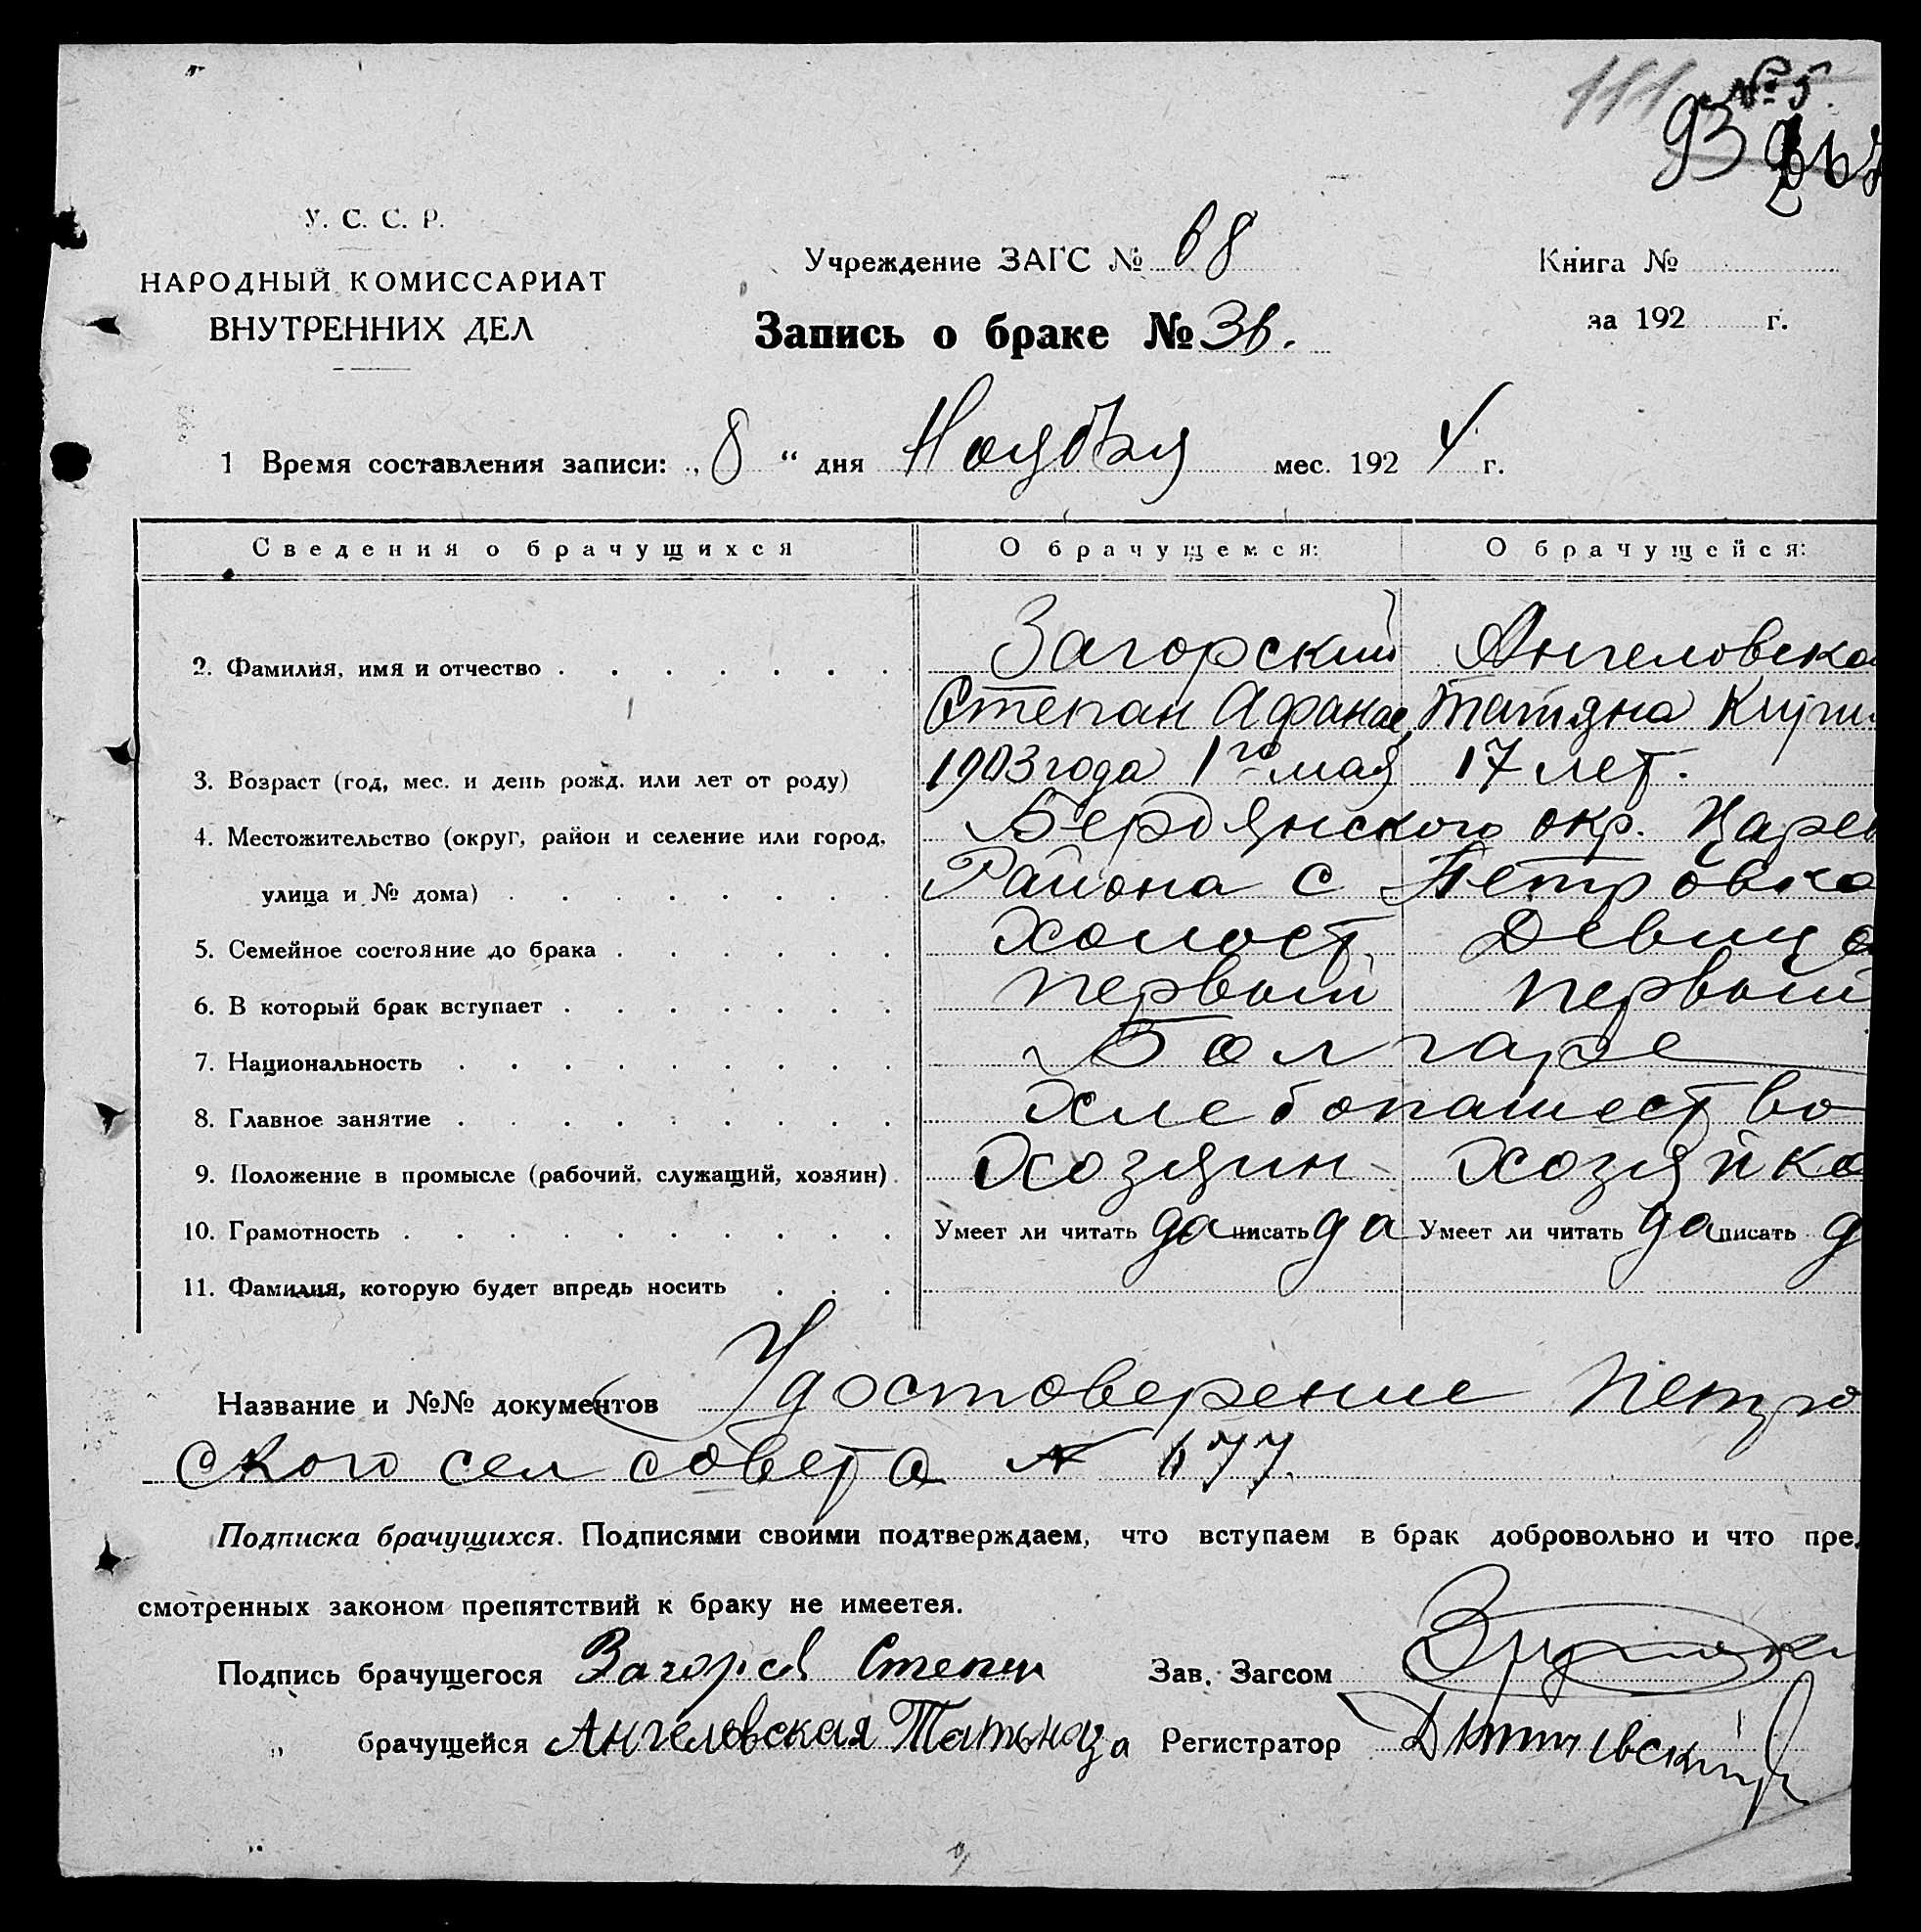 111 № 5.
93
У. С. С. Р.
НАРОДНЫЙ КОМИССАРИАТ
ВНУТРЕННИХ ДЕЛ
Учреждение ЗАГС № 68
Книга №
Запись о браке № 36.
за 192 г.
1 Время составления записи: „ 8 “ дня Ноября мес. 192 4 г.
Сведения о брачущихся О брачущемся: О брачущейся:
2. Фамилия, имя и отчество Загорский Ангеловска
Степан Афанас Татяна Кири
3. Возраст (год, мес. и день рожд. или лет от роду) 1903 года 1го мая 17 лет.
4. Местожительство (округ, район и селение или город, Бердянского окр. Царев
улица и № дома) Района с Петровка
5. Семейное состояние до брака Холост Девица
6. В который брак вступает первый первый
7. Национальность Болгаре
8. Главное занятие Хлебопашество
9. Положение в промысле (рабочий, служащий, хозяин) Хозяин Хозяйка
10. Грамотность Умеет ли читать да писать да Умеет ли читать да писать д
11. Фамилия, которую будет впредь носить
Название и №№ документов Удостоверение Петро
ского сел совета № 677.
Подписка брачущихся. Подписями своими подтверждаем, что вступаем в брак добровольно и что пре.
смотренных законом препятствий к браку не имеетея.
Подпись брачущегося Загорс Степан Зав. Загсом
„ брачущейся Ангеловская Татьяна Регистратор